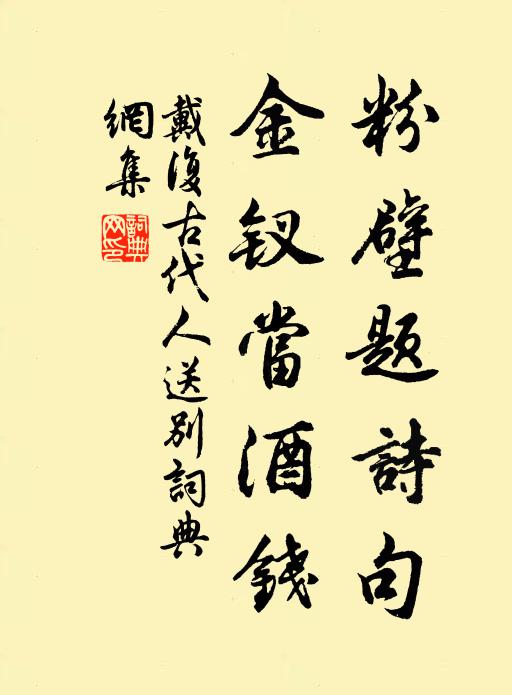 粉壁題詩句
金钗當酒錢
戴復古代人送别詞典
網集
詞典网印